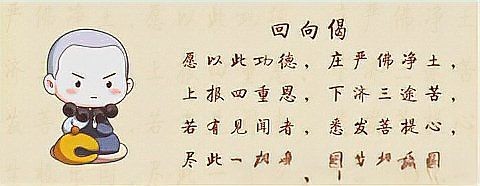 回向偈
愿以此功德，庄严佛净土，
上报四重恩，下济三途苦，
若有见闻者，悉发菩提心，
尽此一